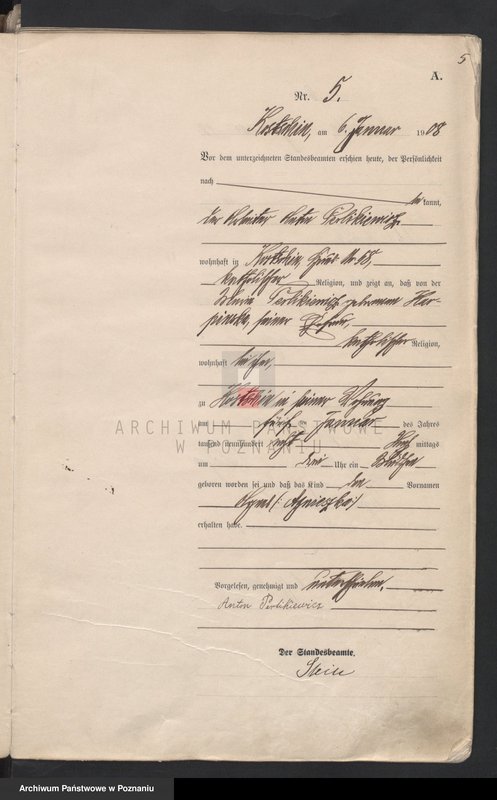 5
A.
Nr. 5.
Kostschin, am 6. Januar 1908
Vor dem unterzeichneten Standesbeamten erschien heute, der Persönlichkeit
nach
be kannt,
der Arbeiter Anton Perlikiewicz
wohnhaft in Kostschin, Haus Nr. 58,
katholischer Religion, und zeigt an, daß von der
Perlikiewicz geborenen
seiner Ehefrau,
katholischer Religion,
wohnhaft bei ihm
zu Kostschin in seiner Wohnung
am fünften Januar des Jahres
tausend neunhundert acht mittags
um drei Uhr ein Mädchen
geboren worden sei und daß das Kind den Vornamen
Agnes (: Agnieszka)
erhalten habe.
Vorgelesen, genehmigt und unterschrieben.
Anton Perlikiewicz
Der Standesbeamte.
ARCHIWUM PAŃSTWOWE
W POZNANIU
Archiwum Państwowe w Poznaniu